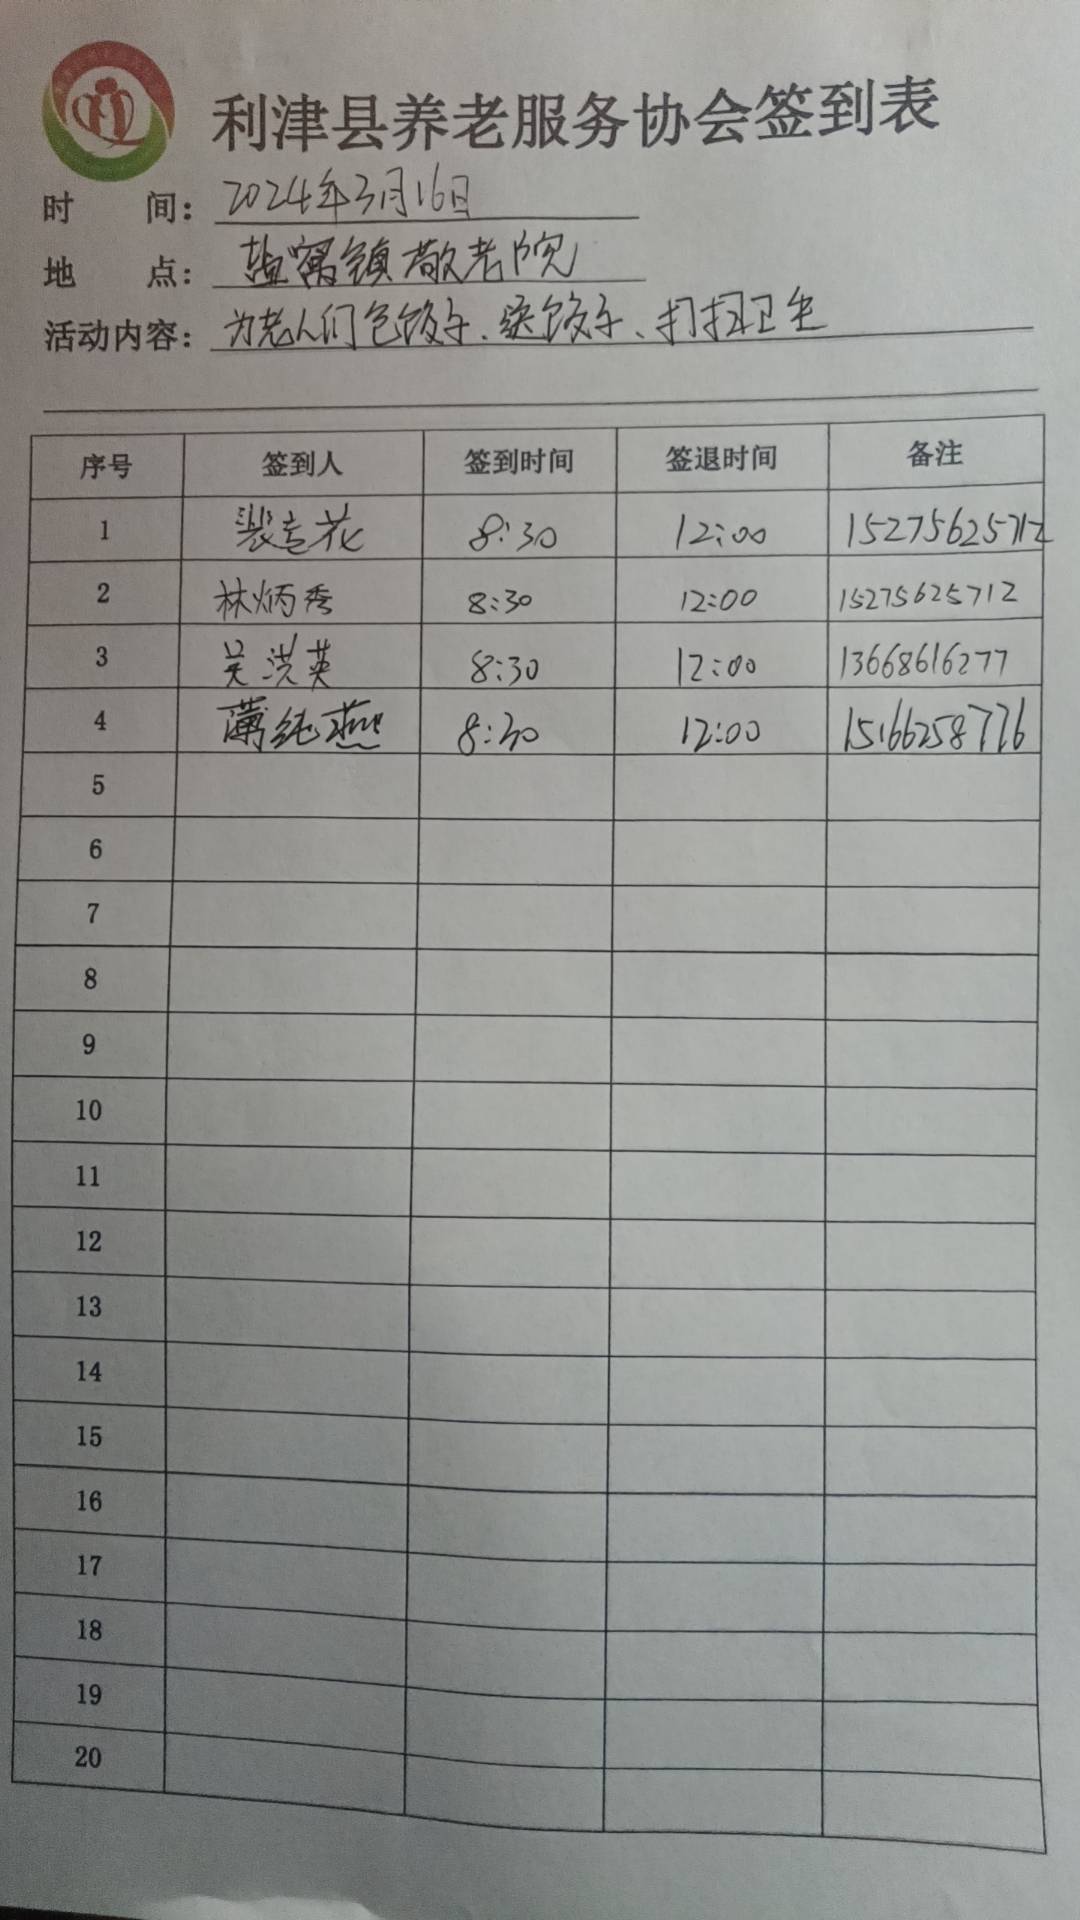 利津县养老服务协会签到表
时 间：2024年3月16日
地 点：盐窝镇敬老院
活动内容：为老人们包饺子、送饺子、打扫卫生
序号 签到人 签到时间 签退时间 备注
1 花 8:30 12:00 15275625712
2 林炳秀 8:30 12:00 15275625712
3 吴洪英 8:30 12:00 13668616277
4 薄纯燕 8:30 12:00 15166258776
5
6
7
8
9
10
11
12
13
14
15
16
17
18
19
20